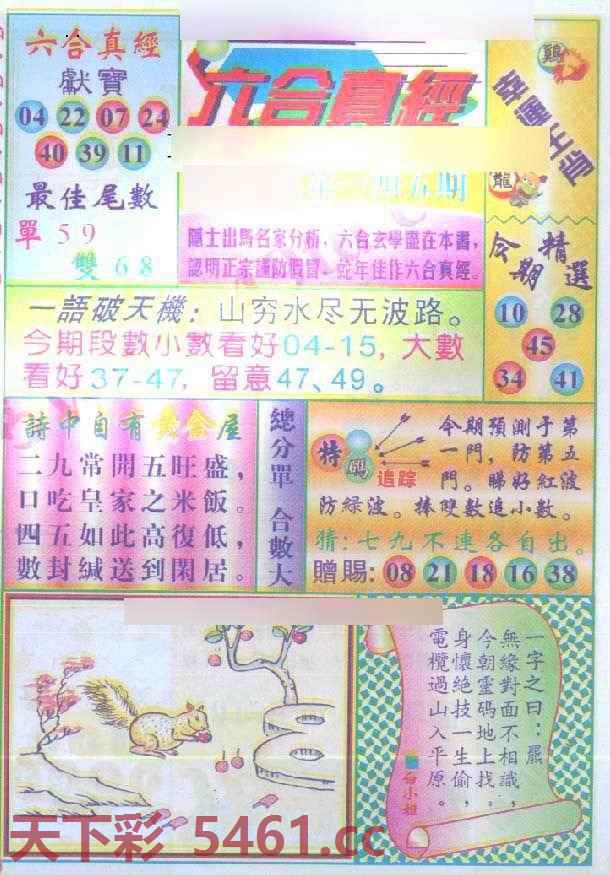 六合真經
獻寶
04 22 07 24
40 39 11
最佳尾數
單 5 9
雙 6 8
六合真經
四五期
隱士出馬名家分析，六合玄學盡在本書，
認明正宗謹防假冒，蛇年佳作六合真經。
鷄
龍
今期精選
10 28
45
34 41
一語破天機：山穷水尽无波路。
今期段數小數看好04-15，大數
看好37-47，留意47、49。
詩中自有黄金屋
二九常開五旺盛，
日吃皇家之米飯。
四五如此高復低，
數封緘送到閑居。
總分單 合數大
特碼
追踪
今期預測于第
一門，防第五
門。睇好紅波
防緑波。捧雙數追小數。
猜：七九不連各自出。
贈賜：08 21 18 16 38
一字之曰：羆
無緣對面不相識，
今朝靈碼地上找。
身懷絶技一生偷，
電欖過山入平原。
白小姐
天下彩 5461.cc